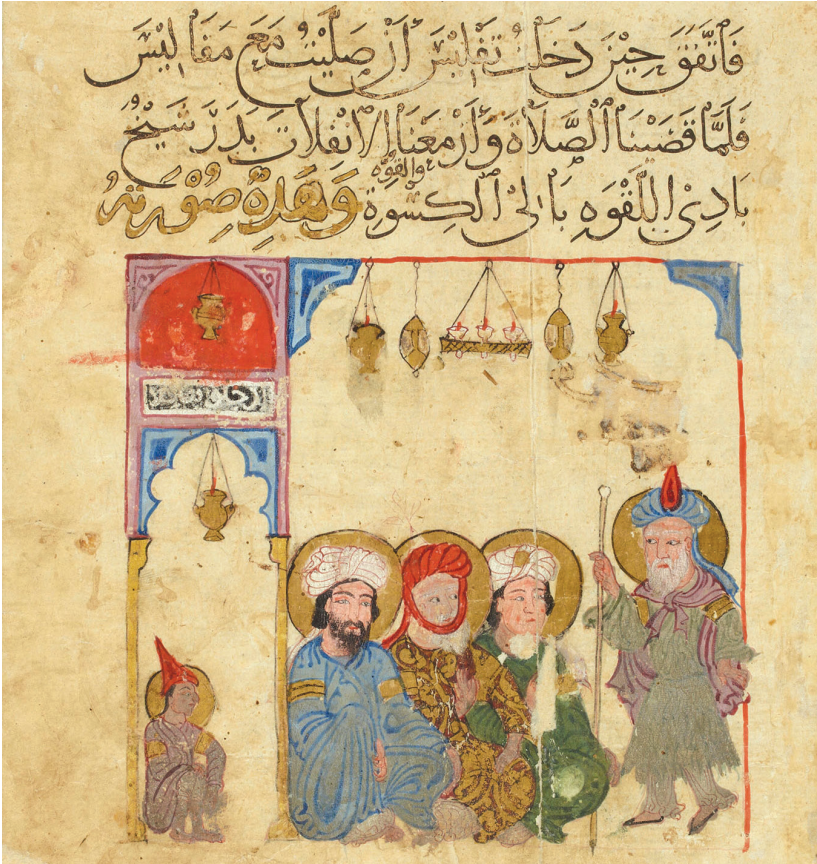 فَاتَّفَقَ حِيْنَ دَخَلْتُ تَفْلِيْسَ أَنْ صَلَّيْتُ مَعَ مَفَالِيْسَ
فَلَمَّا قَضَيْنَا الصَّلَاةَ وَأَزْمَعْنَا الْانْفِلَاتَ بَدَرَ شَيْخٌ
بَادِيْ اللَّقْوَهِ بَالِيْ الْكِسْوَةِ والقوه وَهَذِهِ صُوْرَتهُ